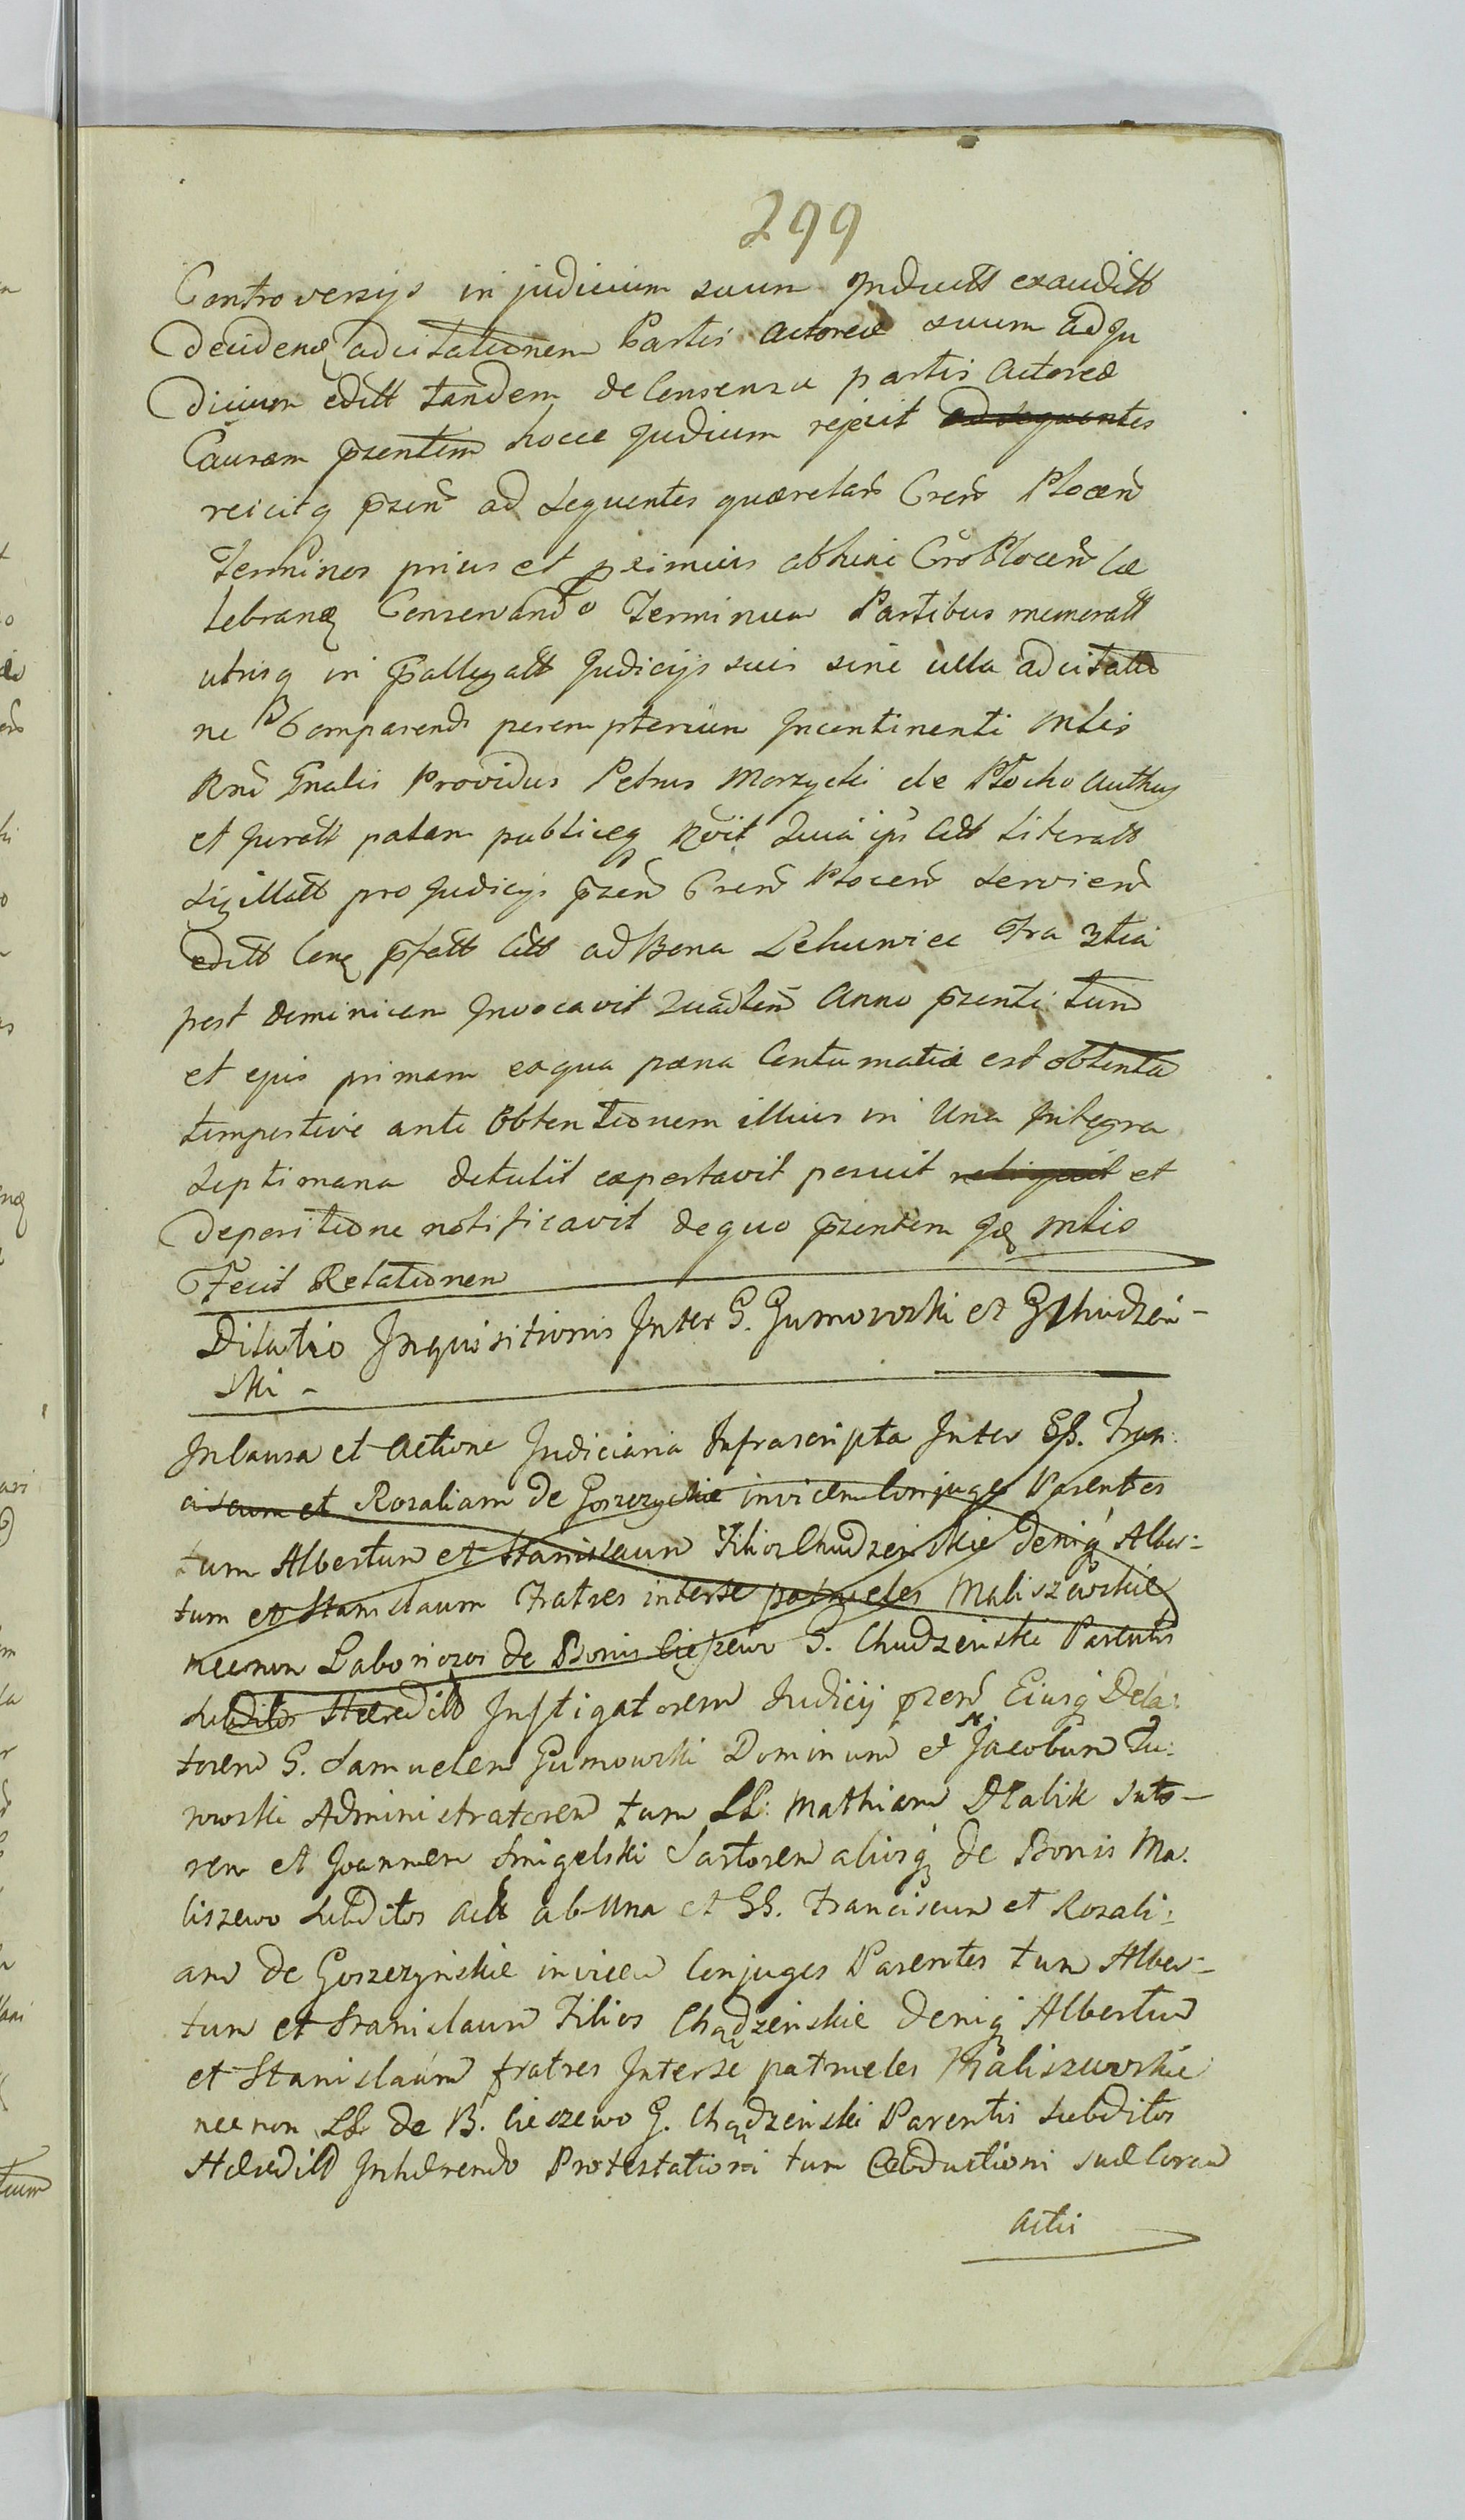 299
Controversijs in judicium suum Inductt exauditt
Decidenq adcitationem Partis Actoreæ suum ad Ju
dicium editt tandem de Consensu partis Actoreæ
Causam przentem hocce Judicium rejecit ad sequentes
reicitq przen ad sequentes quærelar Cren Plocen
Terminos prius et primius abhinc Cro Plocen Cæ
lebranq Conservando Terminum Partibus memoratt
utrisq in pallegatt Judicijs suis sine ulla adcitatio
ne Comparendi peremptorium Incontinenti Mtis
Rni Gnalis Providus Petrus Morzycki de Plocko Authus
et Juratt palam publiceq Rvit Quia ips Citt Literatt
Sigillatt pro Judicijs przen Cren Plocen servien
editt Cong pfatt Citt ad Bona Lehuwiec Fra 3tia
post Dominicam Invocavit Quadlen Anno przenti tum
et ejus primam exqua pæna Contumatiæ est obtenta
tempestive ante Obtentionem illius in Una Integra
Septimana detulit exportavit posuit reliquit et
Depositione notificavit de quo przentem Jdq Mtis
Fecit Relationem
Dilatio Inquisitionis Inter G. Gumowski et G Chudzeń-
ski -
In Causa et Actione Judiciaria Infrascripta Inter GG. Fran:
ciscum et Rozaliam de Goszczyńskie invicem Conjuges Parentes
tum Albertum et Stanislaum Filios Chudzeńskie deniq Alber-
tum et Stanislaum Fratres interse patrueles Maliszewskie
necnon Laboriosos de Bonis Cieszewo G. Chudzeński Parentis
Subditos Hæreditt Instigatorem Judicij przen Eiusq Dela:
torem G. Samuelem Gumowski Dominum et M. Jacobum Tu:
rowski Administratorem tum LL: Mathiam Dtalik Suto-
rem et Joannem Smigelski Sartorem aliosq de Bonis Ma.
liszewo Subditos Actt ab Una et GG. Franciscum et Rozali:
am de Goszczyńskie invicem Conjuges Parentes tum Alber-
tum et Stanislaum Filios Chądzeńskie deniq Albertum
et Stanislaum fratres Interse patrueles Maliszewskie
necnon LL de B. Cieszewo G. Chądzeński Parentis Subditos
Hæreditt Inhærendo Protestationi tum Obductioni suæ Coram
Actis